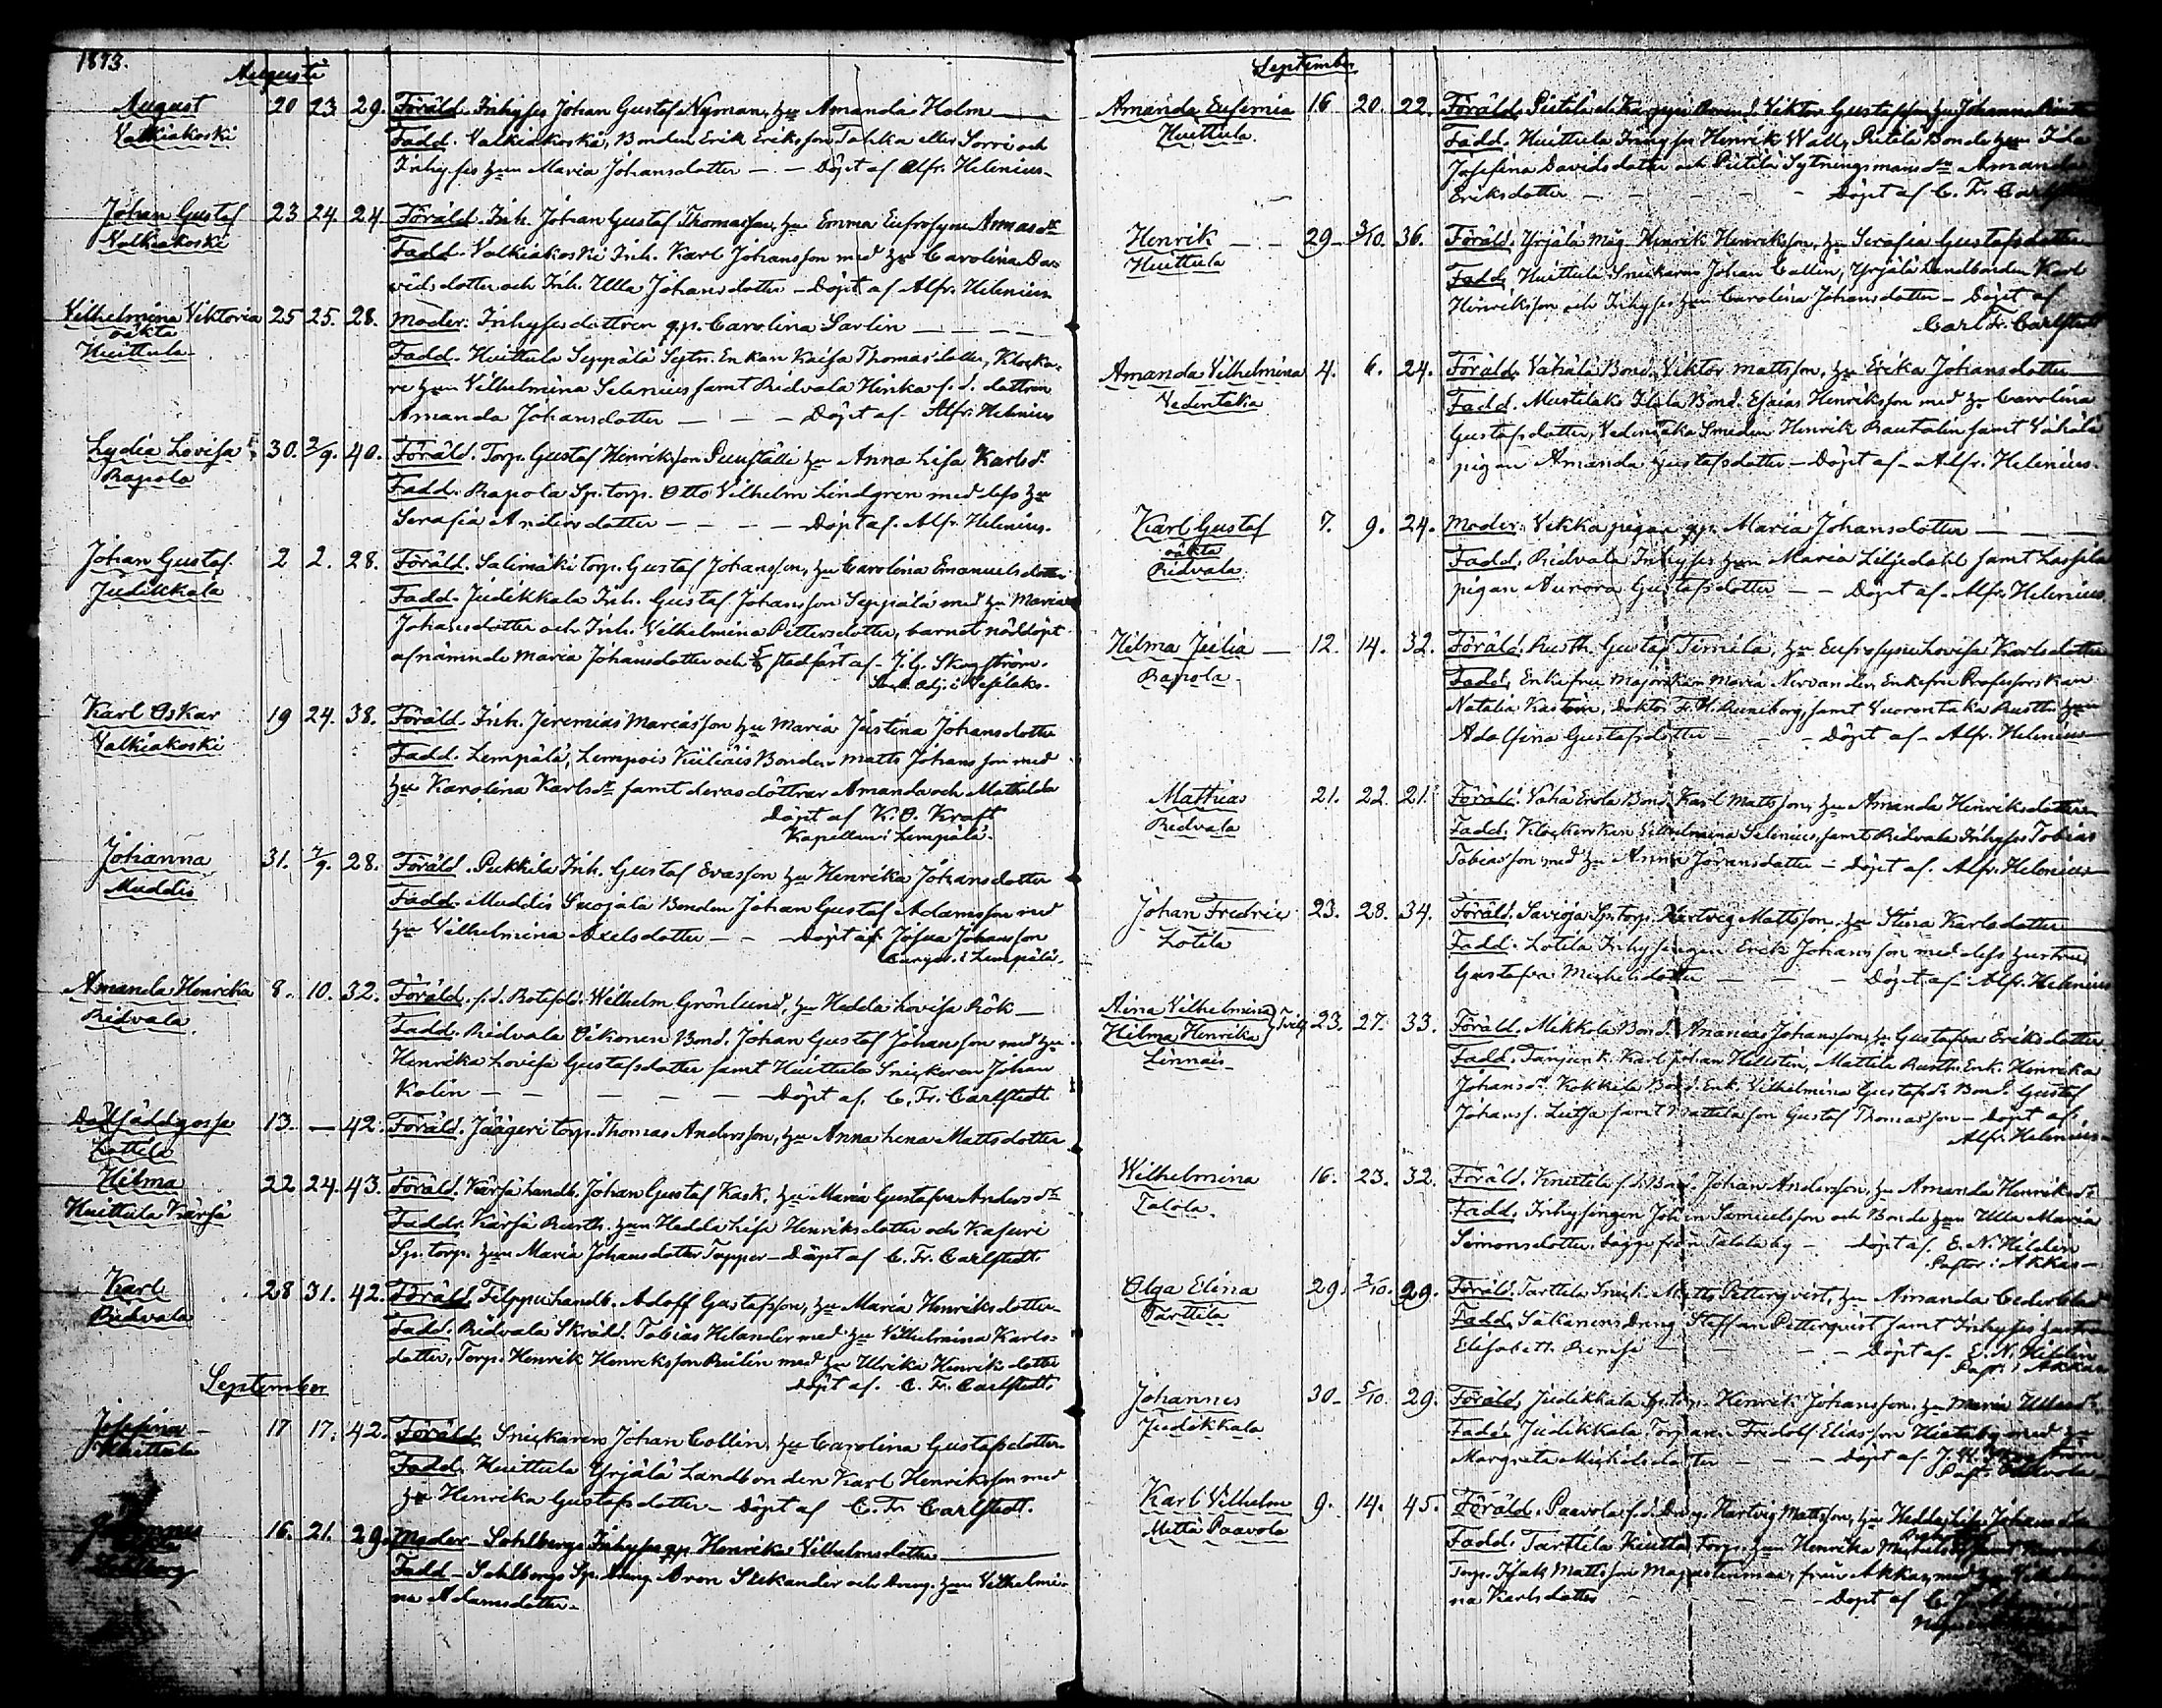 1873.
Augusti
August 20 23 29. Föräld. Inhyses Johan Gustaf Nyman, hu Amanda Holm
Valkiakoski Fadd. Valkiakoski, Bonden Erik Eriksson Tahka eller Sorri och
Inhyses hun Maria Johansdotter — Döpt af Alfr. Helenius
Johan Gustaf 23 24 24 Föräld. Inh. Johan Gustaf Thomasson, hu Emma Eufrosyne Annasdr
Valkiakoski Fadd. Valkiakoski Inh. Karl Johansson med hu Carolina Da-
vidsdotter och Inh. Ulla Johansdotter — Döpt af Alfr. Helenius
Vilhelmina Viktoria 25 25. 28. Moder. Inhysesdottren qp. Carolina Sarlin
oäkta
Huittula Fadd. Huittula Seppälä Sytn. Enkan Kaisa Thomasdotter, Klocka-
re hun Vilhelmina Selenius samt Ridvala Hinka f. d. dottren
Amanda Johansdotter — Döpt af Alfr. Helenius
Lydia Lovisa 30. 2/9. 40. Föräld. Torp. Gustaf Henriksson hu Anna Lisa Karlsdr
Rapola Fadd. Rapola Sp. torp. Otto Vilhelm Lindgren med dess hu
Serafia Andersdotter — Döpt af Alfr. Helenius.
Johan Gustaf 2 2. 28. Föräld. Salimäki torp. Gustaf Johansson, hu Carolina Emanuelsdotter
Judikkala Fadd. Judikkala Inh. Gustaf Johansson Seppälä med hu Maria
Johansdotter och Inh. Vilhelmina Pettersdotter, barnet nöddöpt
af nämnde Maria Johansdotter och stadfäst af J. G. Skogström.
adj. i Vesilaks.
Karl Oskar 19 24. 38. Föräld. Inh. Jeremias Mariasson hu Maria Justina Johansdotter
Valkiakoski Fadd. Lempälä, Lempois Kuiliäis Bonden Matts Johansson med
hu Karolina Karlsdr samt deras döttrar Amanda och Mathilda
Döpt af K. O. Kraft
Kapellan i Lempälä.
Johanna 31. 7/9. 28. Föräld. Pukkila Inh. Gustaf Evasson hu Henrika Johansdotter
Muddis Fadd. Muddis Suojala Bonden Johan Gustaf Adamsson med
hu Vilhelmina Axelsdotter — Döpt af Josua Johansson
i Lempälä.
Amanda Henrika 8. 10. 32. Föräld. f. d. Rotesold. Wilhelm Grönlund, hu Hedda Lovisa Rök
Ridvala. Fadd. Ridvala Oikonen Bond. Johan Gustaf Johansson med hu
Henrika Lovisa Gustafsdotter samt Huittula Snickeren Johan
Kolin — Döpt af C. Fr. Carlstedt
Dödfödd gosse 13. — 42. Föräld. Jäägeri torp. Thomas Andersson, hu Anna Lena Mattsdotter
Lottila
Hilma 22 24. 43. Föräld. Kärsä landb. Johan Gustaf Kask. hu Maria Gustafva Andersdr
Huittula Kärsä Faddr. Kärsä Rusth. hun Hedda Lisa Henriksdotter och Kasuri
Sp. torp. hun Maria Johansdotter Topper — Döpt af C. Fr. Carlstedt.
Karl 28 31. 42. Föräld. Filppu landb. Adolf Gustafsson, hu Maria Henriksdotter
Ridvala Fadd. Ridvala Skräd. Tobias Helander med hu Vilhelmina Karls-
dotter, Torp. Henrik Henriksson med hu Ulrika Henriksdotter
Döpt af C. Fr. Carlstedt.
September
Josefina 17 17. 42. Föräld. Snickaren Johan Collin, hu Carolina Gustafsdotter
Huittula Fadd. Huittula Yrjälä Landbonden Karl Henriksson med
hu Henrika Gustafsdotter — Döpt af C. Fr. Carlstedt.
16. 21. 29. Moder — Sohlbergs Inhyses qp. Henrika Vilhelmsdotter
Sohlberg Fadd — Sohlbergs Sp. dräng Aron Stekander och dräng. hun Vilhelmi-
na Adamsdotter.
September
Amanda Eufemia 16 20. 22. Föräld. Viktor Gustafsson hu Johanna
Huittula. Fadd. Huittula Inhyses Henrik Wall, Pietilä Bonde hun Ida
Josefina Davidsdotter och Pietilä Sytningsmans dr Amanda
Eriksdotter — Döpt af C. Fr.
Henrik 29 3/10. 36. Föräld. Yrjälä Måg Henrik Henriksson, hu Serafia Gustafsdotter
Huittula Fadd. Huittula Snickaren Johan Collin, Yrjälä Landbonden Karl
Henriksson och Inhyses hun Carolina Johansdotter — Döpt af
Carl Fr. Carlstedt
Amanda Vilhelmina 4. 6. 24. Föräld. Vahälä Bond. Viktor Mattsson, hu Erika Johansdotter
Vedentaka Fadd. Mustilaks Ilola Bond. Esaias Henriksson med hu Carolina
Gustafsdotter, Vedentaka Smeden Henrik Rautalin samt Vahälä
pigan Amanda Gustafsdotter — Döpt af Alfr. Helenius.
Karl Gustaf 7. 9. 24. Moder. Vekka pigan qp. Maria Johansdotter
oäkta
Ridvala. Fadd. Ridvala Inhyses hun Maria Liljedahl samt Lassila
pigan Aurora Gustafsdotter — Döpt af Alfr. Helenius
Hilma Julia 12. 14. 32. Föräld. Rusth. Gustaf Timila, hu Eufrosyne Lovisa Karlsdotter
Rapola. Fadd. Enkefru Majorskan Maria Nervander, Enkefru Professorskan
Natalia Kastrén, Doktor F. W. Runeborg, samt Vuorentaka Rusth. hun
Adolfina Gustafsdotter — Döpt af Alfr. Helenius
Mathias 21. 22. 21. Föräld. Vähä Erola Bond. Karl Mattsson, hu Amanda Henriksdotter
Ridvala Fadd. Klockerskan Vilhelmina Selenius, samt Ridvala Inhyses Tobias
Tobiasson med hu Anna Göransdotter — Döpt af Alfr. Helenius
Johan Fredric 23. 28. 34. Föräld. Savioja Sp. torp. Hartvig Mattsson, hu Stina Karlsdotter
Lotila Fadd. Lotila Inhysingen Erik Johansson med dess hustru
Gustafva Michelsdotter — Döpt af Alfr. Helenius
Aina Vilhelmina
Hilma Henrika 23. 27. 33. Föräld. Mikkola Bond. Ananias Johansson, hu Gustafva Eriksdotter
Linnais Fadd. Fanjunk. Karl Johan Hellsten, Mattila Rusth. Enk. Henrika
Johansdr Kokkila Bond. Enk. Vilhelmina Gustafsdr Bond. Gustaf
Johanss. samt Mattila son Gustaf Thomasson — Döpt af
Alfr. Helenius
Wilhelmina 16. 23. 32. Föräld. Knuutila f. d. Bond. Johan Andersson, hu Amanda Henriksdr
Talola. Fadd. Inhysingen Johan Samuelsson och Bonde hun Ulla Maria
Simonsdotter, begge från Talola by — Döpt af E. N. Hildén
Pastor i Akkas
Olga Elina 29. 3/10. 29. Föräld. Tarttila Snick. Matts Petterqvist, hu Amanda Cederblad
Tarttila Fadd. Säkönens dräng Steffan Petterqvist samt Inhyses hustru
Elisabeth — Döpt af E. N. Hildén
Past. i Akkas
Johannes 30. 5/10. 29. Föräld. Judikkala Sp. torp. Henrik Johansson, hu Maria Ullasdr
Judikkala Fadd. Judikkala Torparen Fridolf Eliasson med hu
Margreta Mickelsdotter — Döpt af
Karl Vilhelm 9. 14. 45. Föräld. Paavola f. d. dräng. Hartvig Mattsson, hu Hedda Lisa
Metta Paavola Fadd. Tarttila Torp. hun Henrika
Torp. Isak Mattsson från Akkas, med hu
na Karlsdotter — Döpt af